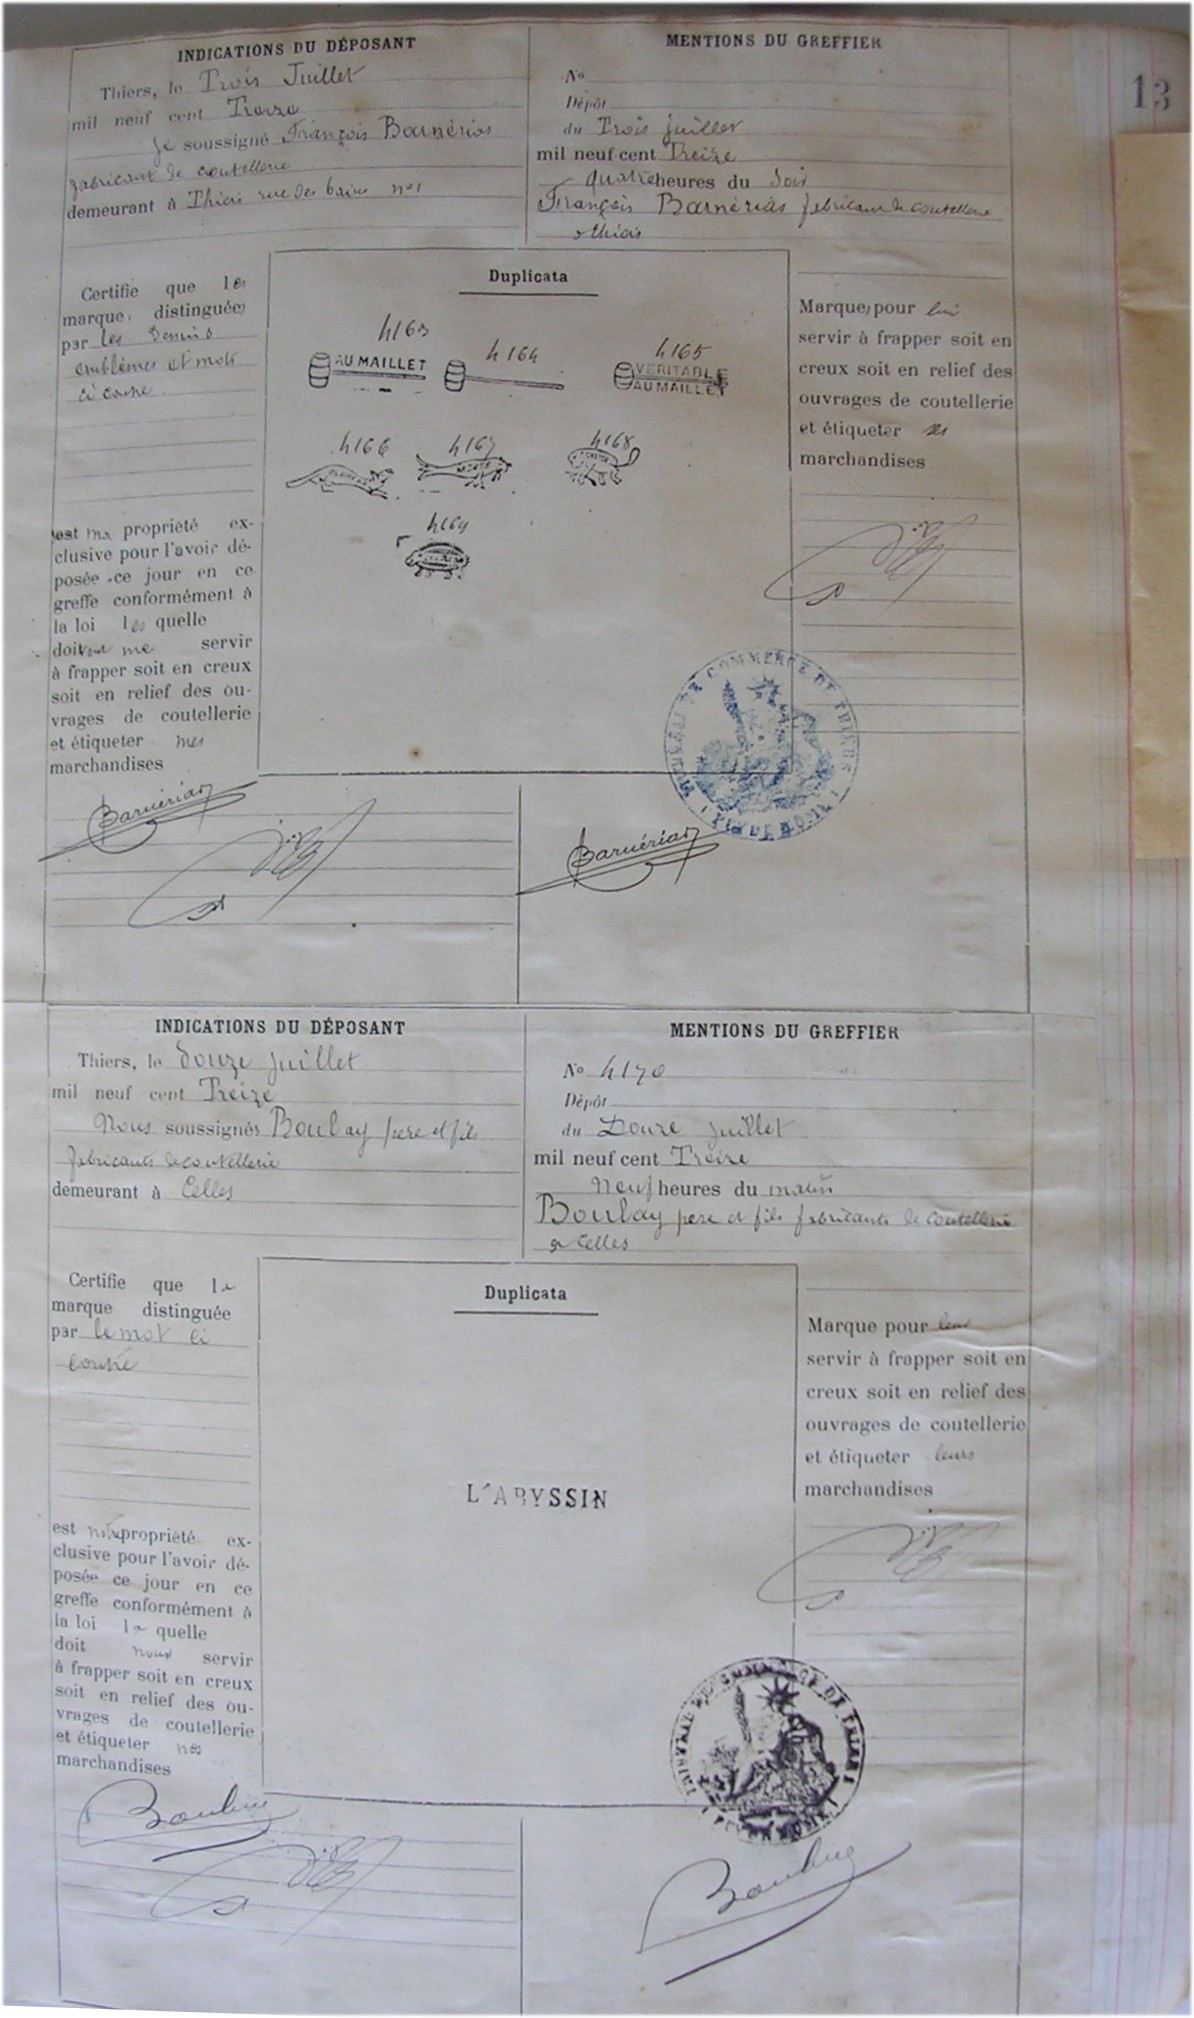 13
INDICATIONS DU DÉPOSANT
Thiers, le Trois Juillet
mil neuf cent Treize
Je soussigné François Barnérias
fabricant de coutellerie
demeurant à Thiers rue des bains n°1
MENTIONS DU GREFFIER
N°
Dépôt
du Trois juillet
mil neuf cent Treize
quatre heures du soir
François Barnérias fabricant de coutellerie
à Thiers
Certifie que les
marques distinguées
par les dessins
emblèmes et mots
ci contre
est ma propriété ex-
clusive pour l'avoir dé-
posée ce jour en ce
greffe conformément à
la loi les quelle
doivent me servir
à frapper soit en creux
soit en relief des ou-
vrages de coutellerie
et étiqueter mes
marchandises
Duplicata
4163
AU MAILLET
4164
4165
VERITABLE
AU MAILLET
4166
4167
4168
4169
Marques pour lui
servir à frapper soit en
creux soit en relief des
ouvrages de coutellerie
et étiqueter ses
marchandises
TRIBUNAL DE COMMERCE DE THIERS
(PUY DE DOME)
Barnérias
Barnérias
INDICATIONS DU DÉPOSANT
Thiers, le Douze juillet
mil neuf cent Treize
Nous soussignés Boulay père et fils
fabricants de coutellerie
demeurant à Celles
MENTIONS DU GREFFIER
N° 4170
Dépôt
du Douze juillet
mil neuf cent Treize
Neuf heures du matin
Boulay père et fils fabricants de coutellerie
à Celles
Certifie que la
marque distinguée
par le mot ci
contre
est notre propriété ex-
clusive pour l'avoir dé-
posée ce jour en ce
greffe conformément à
la loi la quelle
doit nous servir
à frapper soit en creux
soit en relief des ou-
vrages de coutellerie
et étiqueter nos
marchandises
Duplicata
L'ABYSSIN
Marque pour leur
servir à frapper soit en
creux soit en relief des
ouvrages de coutellerie
et étiqueter leurs
marchandises
TRIBUNAL DE COMMERCE DE THIERS